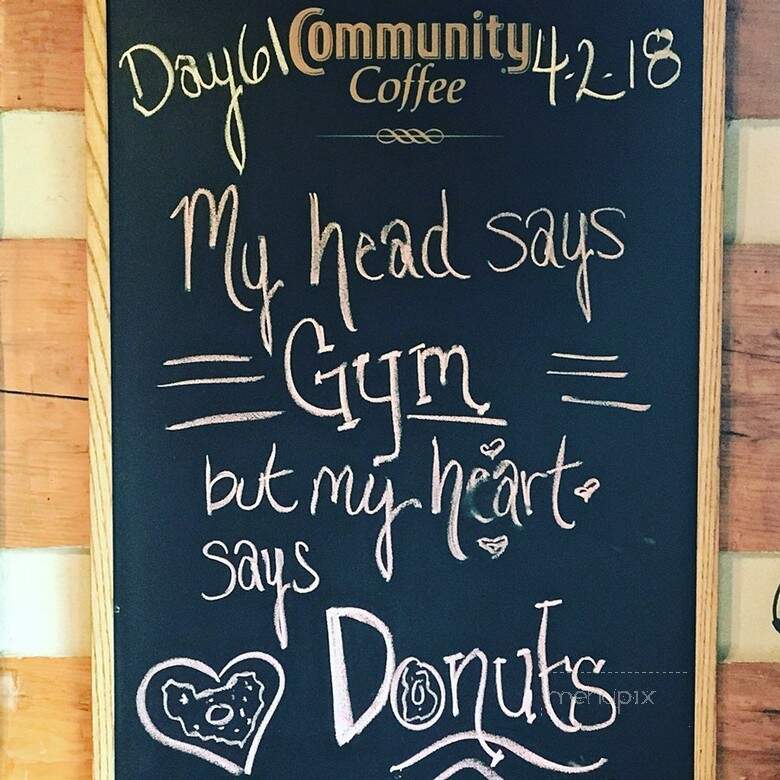 Day 61 Community 4-2-18
Coffee
My head says
Gym
but my heart
says
Donuts
menupix